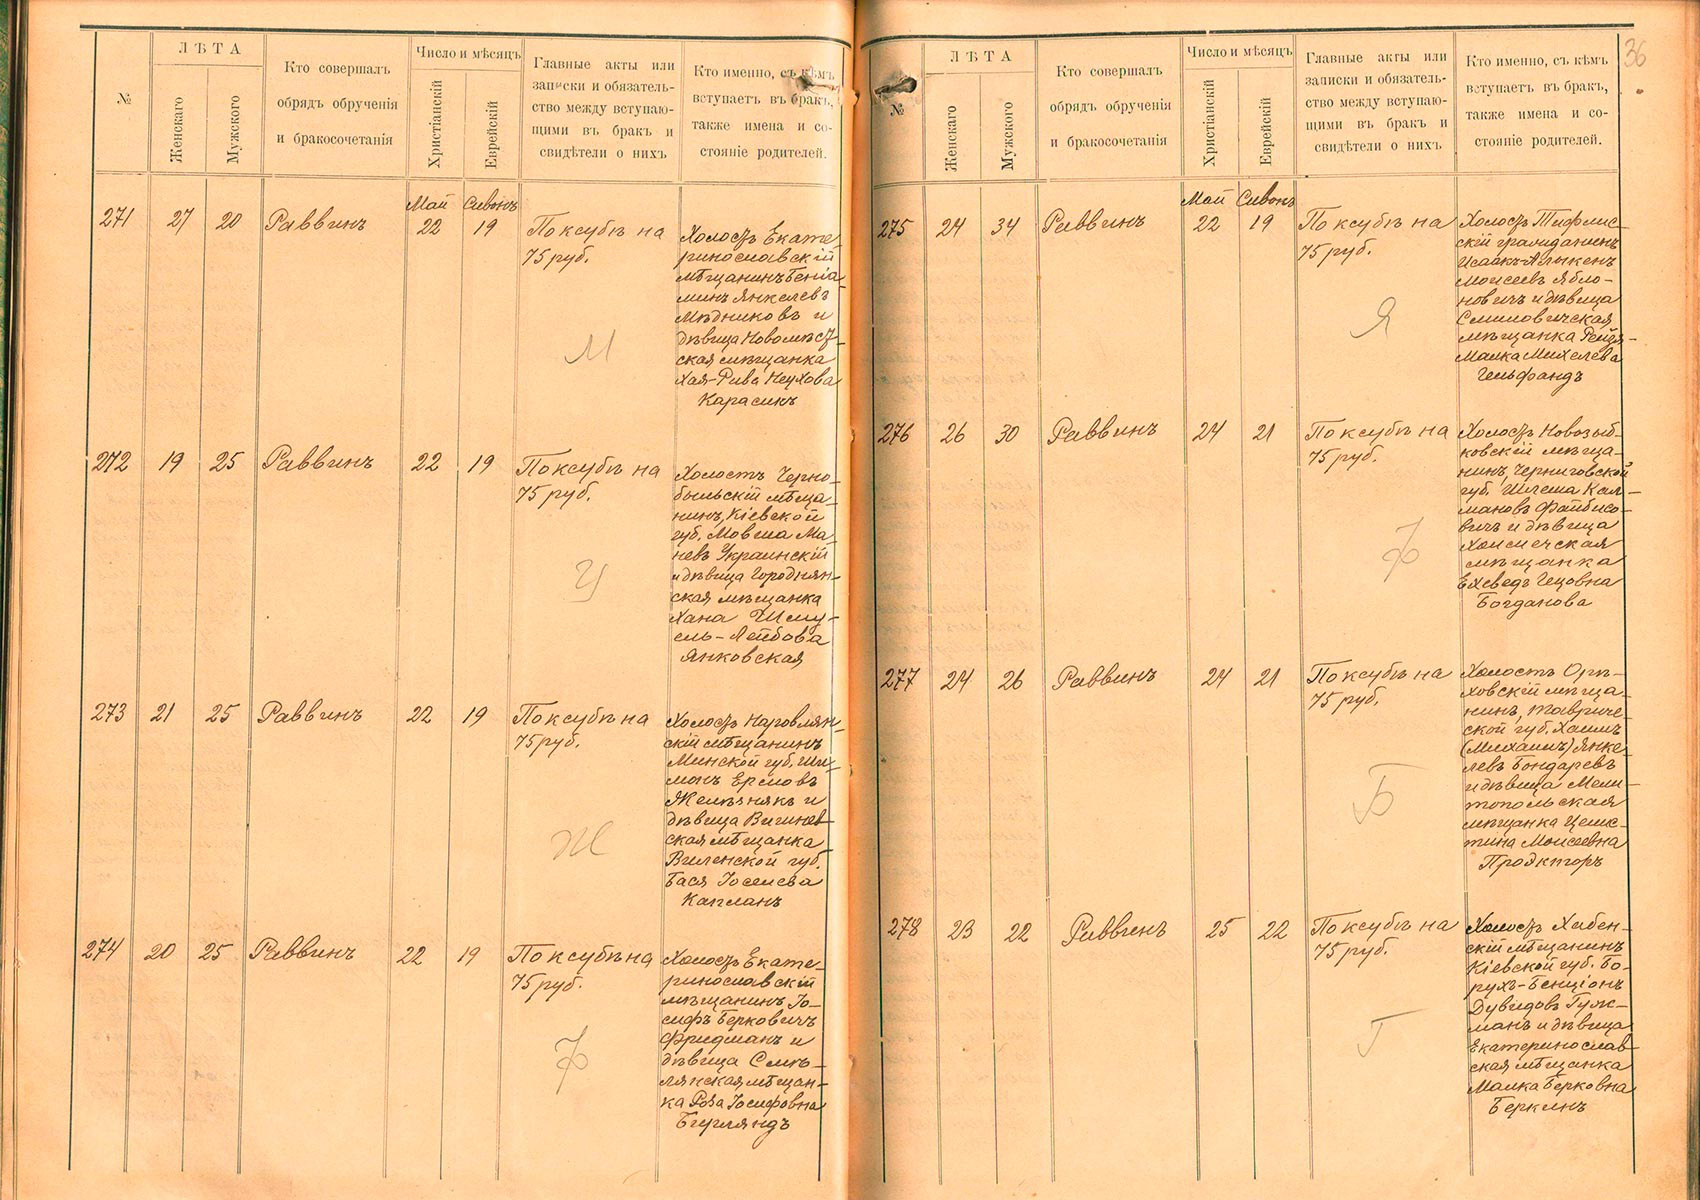 36
№
ЛѢТА
Женскаго
Мужского
Кто совершалъ
обрядъ обрученія
и бракосочетанія
Число и мѣсяцъ
Христіанскій
Еврейскій
Главные акты или
записки и обязатель-
ство между вступаю-
щими въ бракъ и
свидѣтели о нихъ
Кто именно, съ кѣмъ
вступаетъ въ бракъ,
также имена и со-
стояніе родителей.
Май Сивонъ
271 27 20 Раввинъ 22 19
По ксубѣ на
75 руб.
М
Холостъ Екате-
ринославскій
мѣщанинъ Беніа-
минъ Янкелевъ
Мѣдниковъ и
дѣвица Новомѣст-
ская мѣщанка
Хая-Рива Неухова
Карасикъ
272 19 25 Раввинъ 22 19
По ксубѣ на
75 руб.
У
Холостъ Черно-
быльскій мѣща-
нинъ, Кіевской
губ. Мовша Ма-
невъ Украинскій
и дѣвица Городнян-
ская мѣщанка
Хана Шму-
ель-Лейбова
Янковская
273 21 25 Раввинъ 22 19
По ксубѣ на
75 руб.
Ж
Холостъ Наровлян-
скій мѣщанинъ
Минской губ. Ши-
монъ Ермовъ
Желѣзнякъ и
дѣвица Вишнев-
ская мѣщанка
Виленской губ.
Бася Іоселева
Капланъ
274 20 25 Раввинъ 22 19
По ксубѣ на
75 руб.
Ф
Холостъ Екате-
ринославскій
мѣщанинъ Іо-
сифъ Берковичъ
Фридманъ и
дѣвица Смѣ-
лянская мѣщан-
ка Роза Іосифовна
Бурляндъ
№
ЛѢТА
Женскаго
Мужского
Кто совершалъ
обрядъ обрученія
и бракосочетанія
Число и мѣсяцъ
Христіанскій
Еврейскій
Главные акты или
записки и обязатель-
ство между вступаю-
щими въ бракъ и
свидѣтели о нихъ
Кто именно, съ кѣмъ
вступаетъ въ бракъ,
также имена и со-
стояніе родителей.
Май Сивонъ
275 24 34 Раввинъ 22 19
По ксубѣ на
75 руб.
Я
Холостъ Тифлис-
скій гражданинъ
Исаакъ-Алыкенъ
Моисеевъ Ябло-
новичъ и дѣвица
Смиловичская
мѣщанка Рейзя-
Малка Михелева
Гельфандъ
276 26 30 Раввинъ 24 21
По ксубѣ на
75 руб.
Ф
Холостъ Новозыб-
ковскій мѣща-
нинъ, Черниговской
губ. Шлема Кал-
мановъ Файбисо-
вичъ и дѣвица
Холмечская
мѣщанка
Ехевед Гецовна
Богданова
277 24 26 Раввинъ 24 21
По ксубѣ на
75 руб.
Б
Холостъ Орѣ-
ховскій мѣща-
нинъ, Тавриче-
ской губ. Хаимъ
(Михаилъ) Янке-
левъ Бондаревъ
и дѣвица Мели-
топольская
мѣщанка Целес-
тина Моисеевна
Продкторъ
278 23 22 Раввинъ 25 22
По ксубѣ на
75 руб.
Г
Холостъ Хабен-
скій мѣщанинъ
Кіевской губ. Бо-
рухъ-Бенціонъ
Дувидовъ Гуж-
манъ и дѣвица
Екатеринослав-
ская мѣщанка
Малка Берковна
Беркинъ